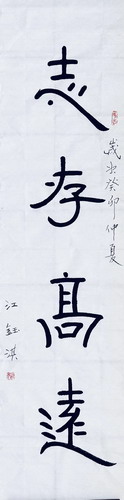 志存高遠
歲次癸卯仲夏
江鈺淇